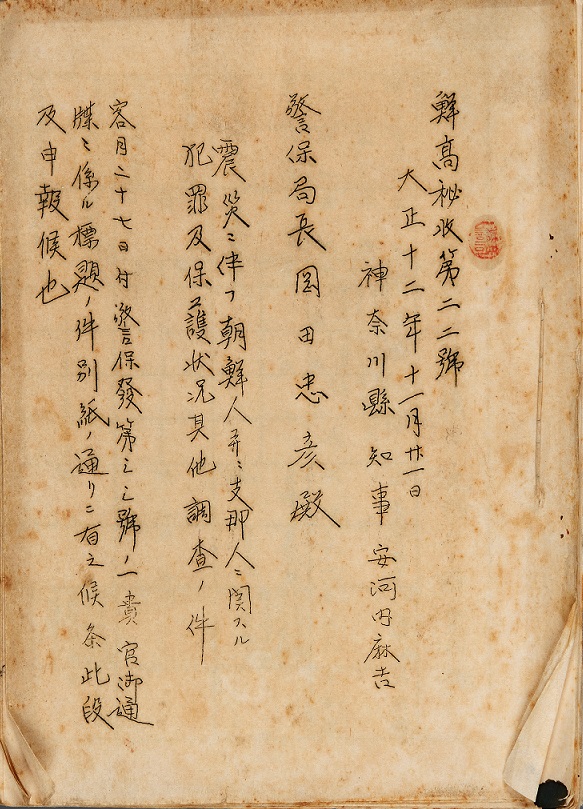 鮮高秘收第二二號
大正十二年十一月廿一日
神奈川縣知事安河内麻吉
警保局長岡田忠彦殿
震災ニ伴フ朝鮮人并ニ支那人ニ関スル
犯罪及保護状况其他調査ノ件
客月二十七日付警保發第三三號ノ一貴官御通
牒ニ係ル標題ノ件別紙ノ通リニ有之候条此段
及申報候也